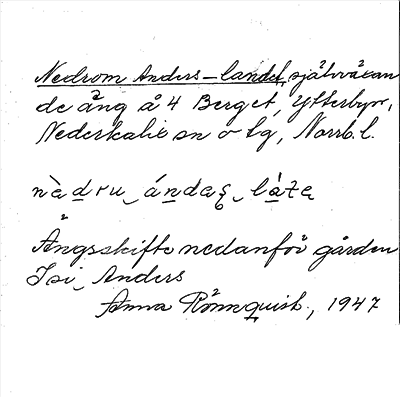 Nedrom Anders-landet, självväxan
de äng å 4 Berget, Ytterbyn,
Nederkalix sn o tg, Norrb. l.
Ängsskifte nedanför gården
Isi Anders
Anna Rönnquist., 1947